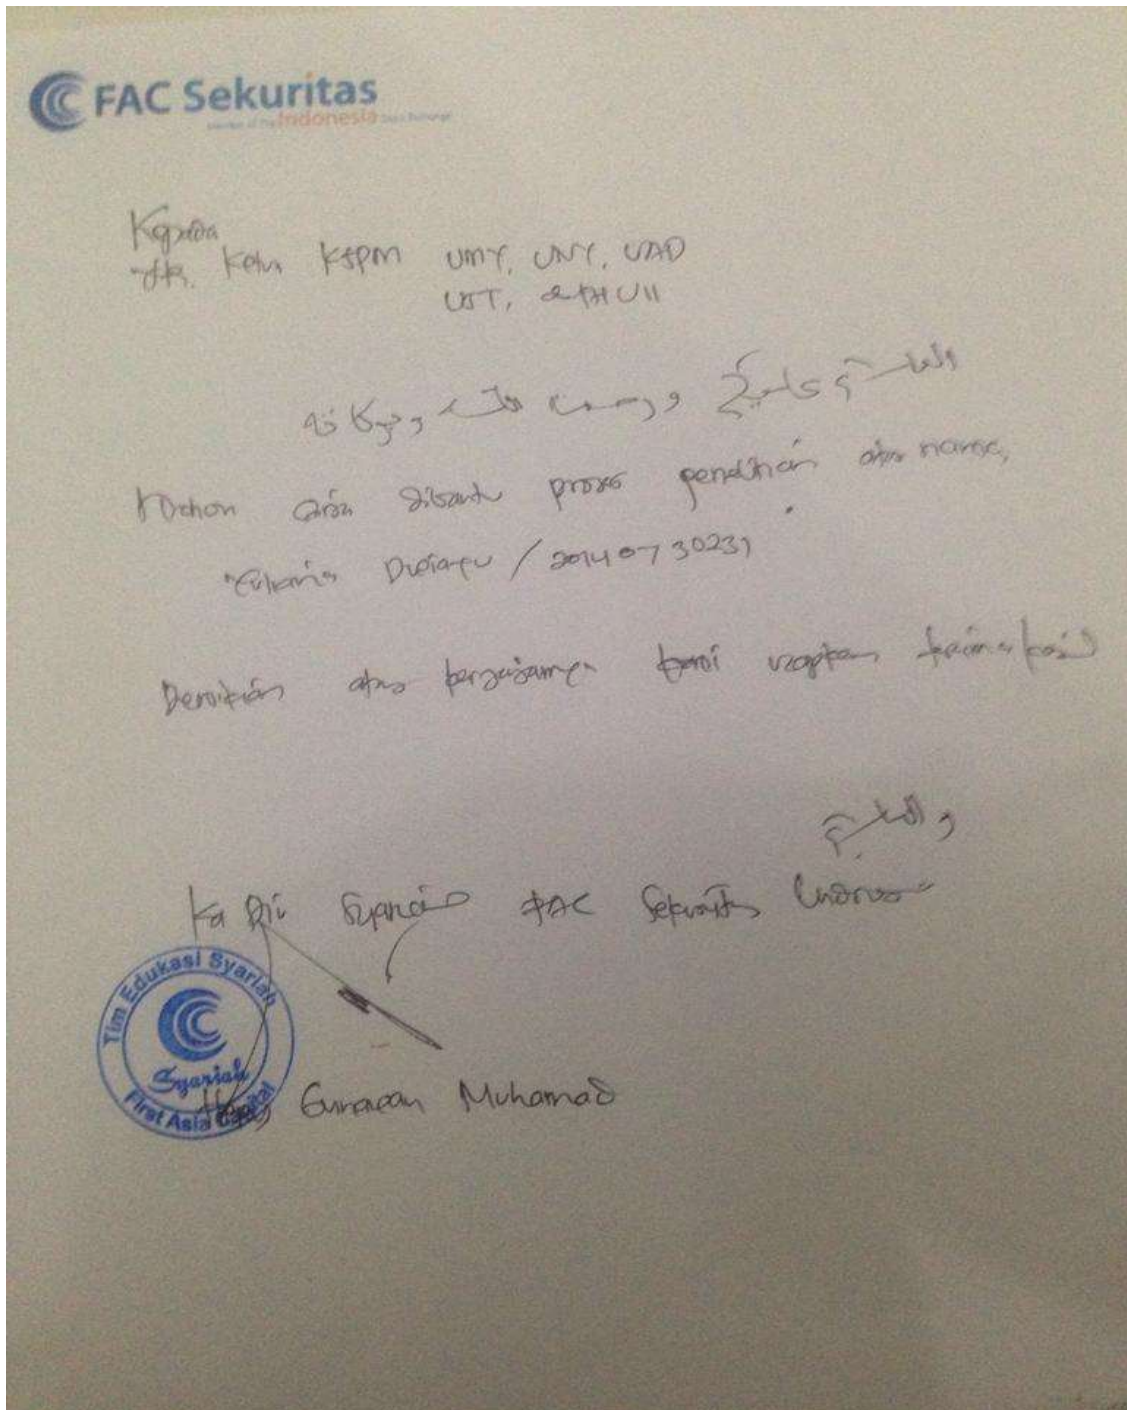 FAC Sekuritas
Member of The Indonesia Stock Exchange
Kepada
Yth. Ketua KSPM UMY, UNY, UAD
UST, & FH UII
السلام عليكم ورحمة الله وبركاته
Mohon dibantu proses penelitian atas nama,
Dwiayu / 20140730231
Demikian atas kerjasamanya kami ucapkan terima kasih
والسلام
Ka Div Syariah FAC Sekuritas Indonesia
Tim Edukasi Syariah
Syariah
First Asia Capital
Gunawan Muhamad